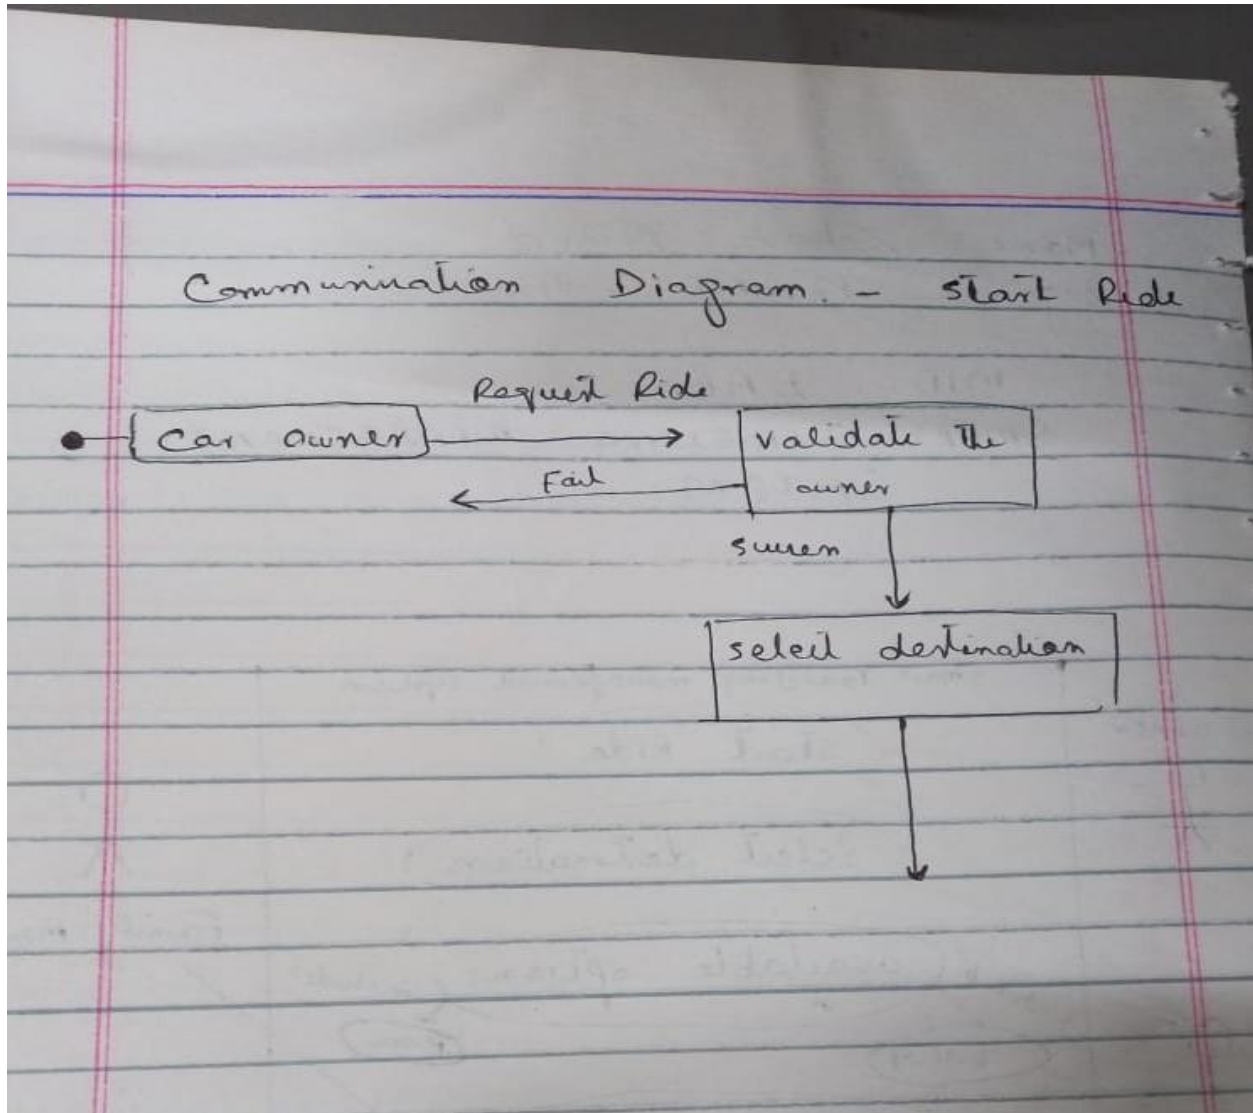 Communication Diagram. - Start Ride
Request Ride
Car owner
validate the
owner
Fail
success
select destination